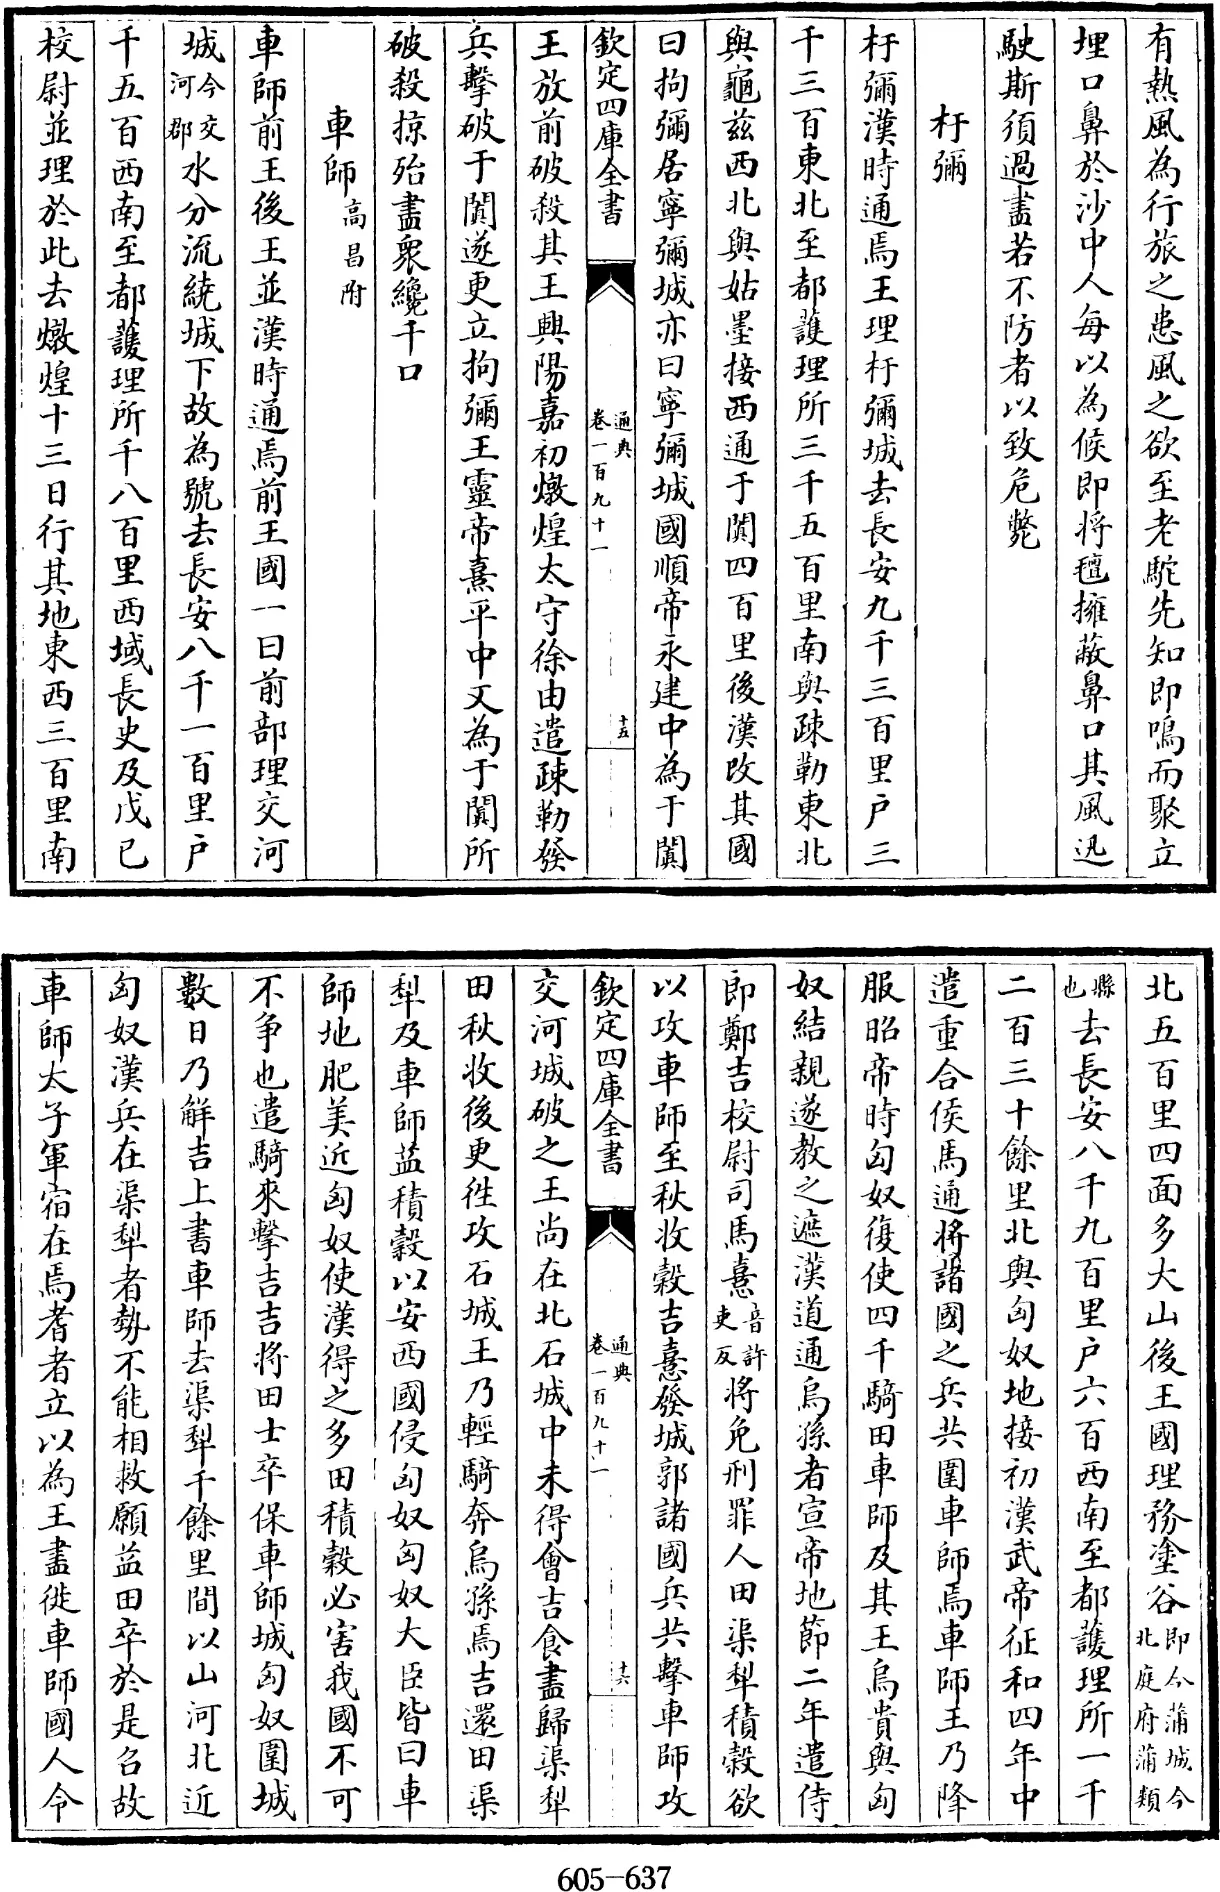 有熱風為行旅之患風之欲至老駝先知即鳴而聚立
埋口鼻於沙中人每以為候即將氊擁蔽鼻口其風迅
駛斯須過盡若不防者以致危斃
杅彌
杅彌漢時通焉王理杅彌城去長安九千三百里户三
千三百東北至都護理所三千五百里南與疎勒東北
與龜兹西北與姑墨接西通于闐四百里後漢改其國
曰拘彌居寧彌城亦曰寧彌城國順帝永建中為于闐
欽定四庫全書
通典
卷一百九十一
十五
王放前破殺其王興陽嘉初燉煌太守徐由遣疎勒發
兵擊破于闐遂更立拘彌王靈帝熹平中又為于闐所
破殺掠殆盡衆纔千口
車師高昌附
車師前王後王並漢時通焉前王國一曰前部理交河
城今交河郡水分流繞城下故為號去長安八千一百里户
千五百西南至都護理所千八百里西域長史及戊已
校尉並理於此去燉煌十三日行其地東西三百里南
北五百里四面多大山後王國理務塗谷即今蒲城今北庭府蒲類
縣也去長安八千九百里户六百西南至都護理所一千
二百三十餘里北與匈奴地接初漢武帝征和四年中
遣重合侯馬通將諸國之兵共圍車師焉車師王乃降
服昭帝時匈奴復使四千騎田車師及其王烏貴與匈
奴結親遂教之遮漢道通烏孫者宣帝地節二年遣侍
郎鄭吉校尉司馬憙音許吏反將免刑罪人田渠犁積穀欲
以攻車師至秋收穀吉憙發城郭諸國兵共擊車師攻
欽定四庫全書
通典
卷一百九十一
十六
交河城破之王尚在北石城中未得會吉食盡歸渠犁
田秋收後更徃攻石城王乃輕騎奔烏孫焉吉還田渠
犁及車師益積穀以安西國侵匈奴匈奴大臣皆曰車
師地肥美近匈奴使漢得之多田積穀必害我國不可
不争也遣騎來擊吉吉將田士卒保車師城匈奴圍城
數日乃解吉上書車師去渠犁千餘里間以山河北近
匈奴漢兵在渠犁者勢不能相救願益田卒於是召故
車師太子軍宿在焉耆者立以為王盡徙車師國人令
605-637